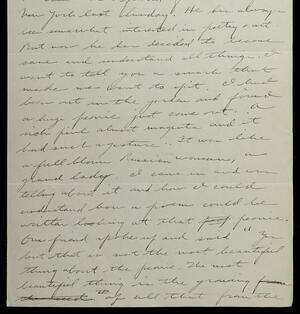 New York last Sunday. He has always
been somewhat interested in poetry and art
But now he has decided to become
sane and understand all things. I
want to tell you a remark that
made me want to spit. I had
been out in the garden and found
a huge peonie just come out. A
rich pink almost magenta and it
had such a gesture. It was like
a full blown Russian woman, a
grand lady. I came in and was
telling about it and how I could
understand how a poem could be
written looking at that peonie.
Our friend spoke up and said "Yes
but that is not the most beautiful
thing about the peonie. The most
beautiful thing is the growing from
the seed of all that from the